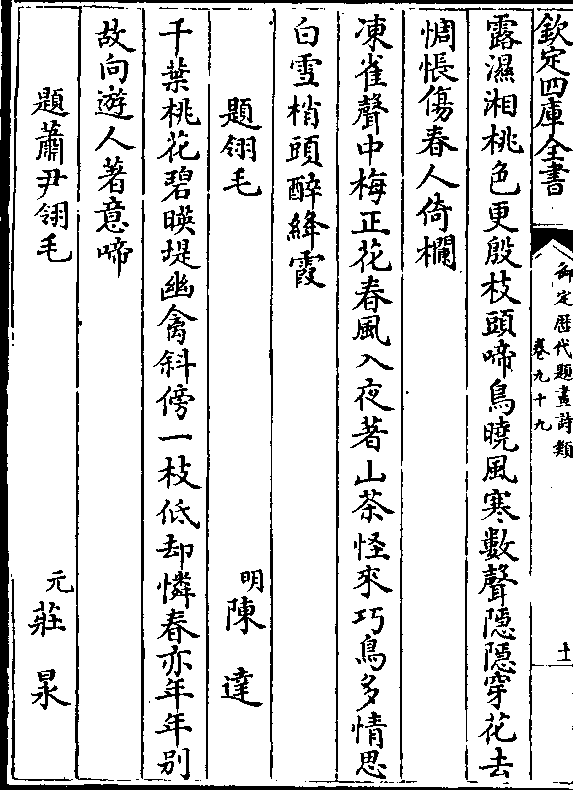 欽定四庫全書
御定歷代題畫詩類
卷九十九
十
露濕湘桃色更殷枝頭啼鳥曉風寒數聲隱隱穿花去
惆悵傷春人倚欄
凍雀聲中梅正花春風入夜著山茶怪來巧鳥多情思
白雪梢頭醉絳霞
題翎毛 明陳達
千葉桃花碧暎堤幽禽斜傍一枝低却憐春亦年年別
故向遊人著意啼
題蕭尹翎毛 元莊㫤